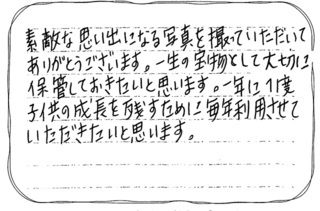 素敵な思い出になる写真を撮っていただいて
ありがとうございます。一生の宝物として大切に
保管しておきたいと思います。一年に1度
子供の成長を残すために毎年利用させて
いただきたいと思います。